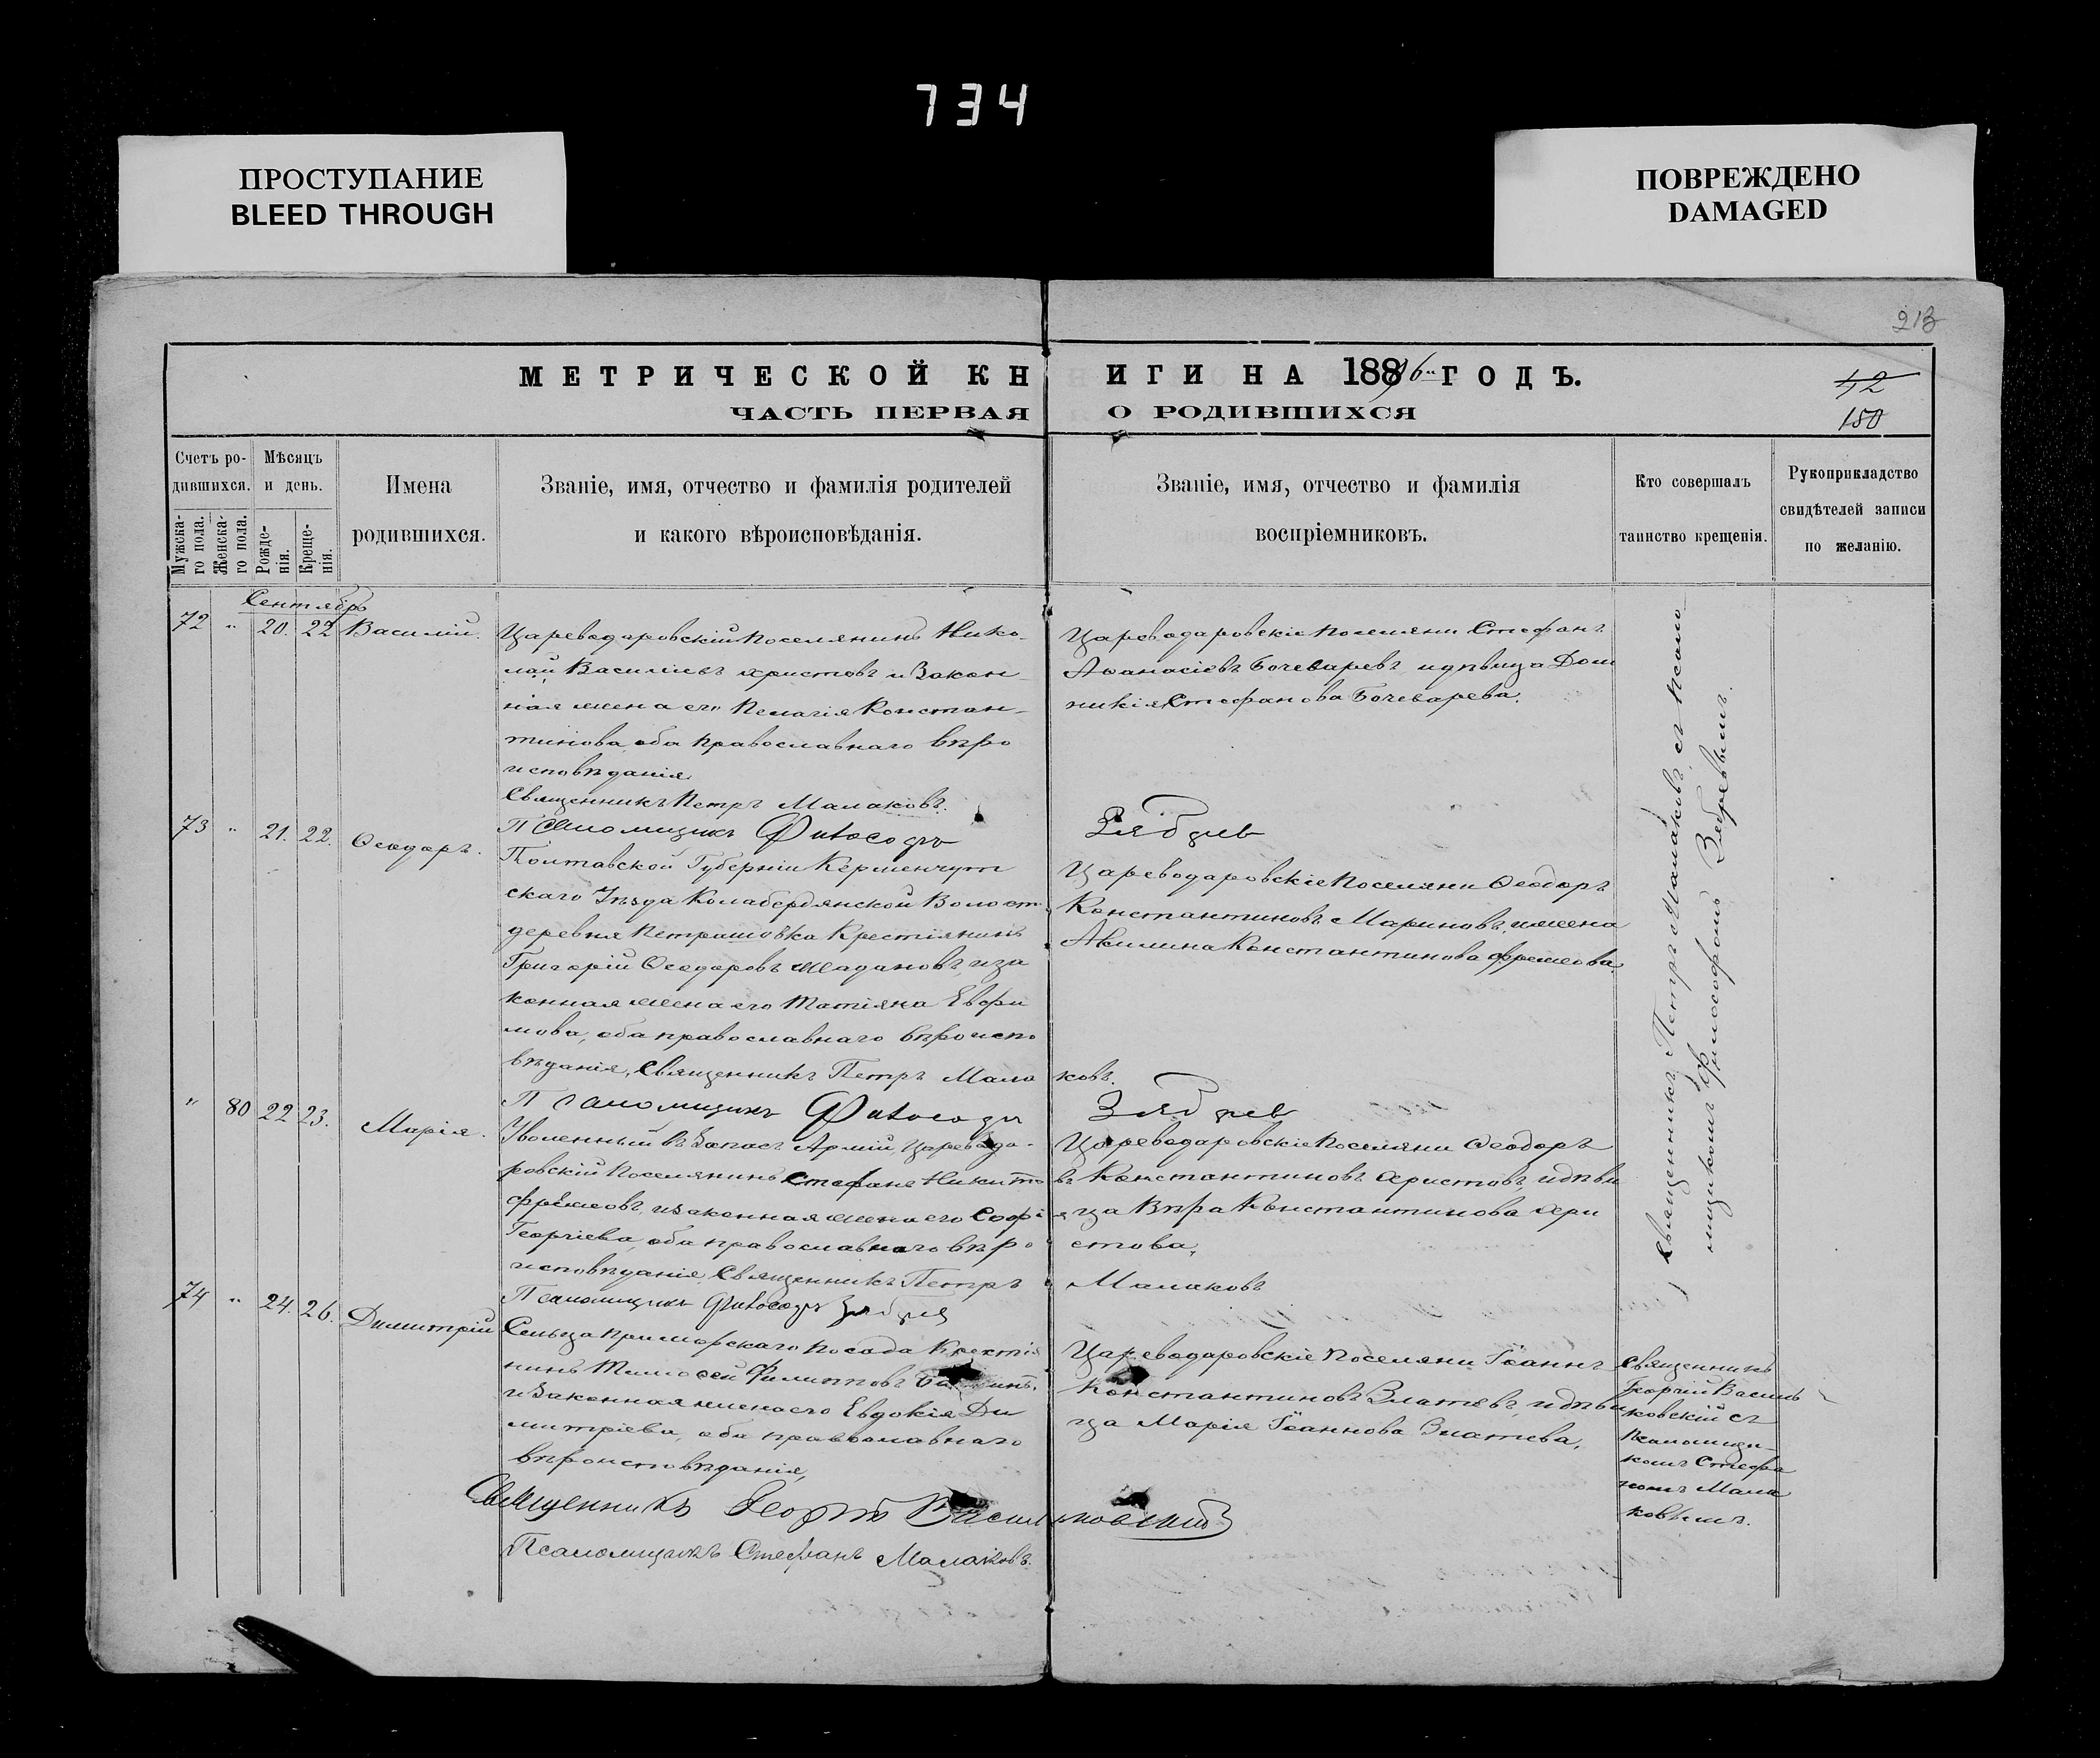 734
ПРОСТУПАНИЕ
BLEED THROUGH
ПОВРЕЖДЕНО
DAMAGED
213
МЕТРИЧЕСКОЙ КНИГИ НА 1886 ГОДЪ.
42
ЧАСТЬ ПЕРВАЯ О РОДИВШИХСЯ
150
Счетъ родившихся.
Мужскаго пола.
Женскаго пола.
Мѣсяцъ и день.
Рожденія.
Крещенія.
Имена родившихся.
Званіе, имя, отчество и фамилія родителей
и какого вѣроисповѣданія.
Званіе, имя, отчество и фамилія
воспріемниковъ.
Кто совершалъ
таинство крещенія.
Рукоприкладство
свидѣтелей записи
по желанію.
Сентябрь
72 " 20. 22 Василій.
Цареводаровскій Поселянинъ Нико-
лай Васильевъ Христовъ и Закон-
ная жена его Пелагія Констан-
тинова, оба православнаго вѣро
исповѣданія.
Священникъ Петръ Малаковъ.
Псаломщикъ Философъ Зябрев
Цареводаровскіе Поселяни Стефанъ
Аѳанасіевъ Бочеваревъ и дѣвица Дом
никія Стефанова Бочеварева.
73 " 21. 22. Ѳеодоръ.
Полтавской Губерніи Керменчут
скаго Уѣзда Колабердянской Волост
деревня Петрашовка Крестіянинъ
Григорій Ѳеодоровъ и за
конная жена его Татіяна Евфи
мова, оба православнаго вѣроиспо
вѣданія, Священникъ Петръ Мала ковъ.
Псаломщикъ Философъ Зябрев
Цареводаровскіе Поселяни Ѳеодоръ
Константиновъ Мариновъ, и жена
Акилина Константинова
" 80 22 23. Марія.
Уволенный въ Запасъ Арміи, Царевода-
ровскій Поселянинъ Стефанъ Никито
въ
и законная жена его Софі я
Георгіева, оба православнаго вѣро
исповѣданія, Священникъ Петръ Малаковъ
Псаломщикъ Философъ
Цареводаровскіе Поселяни Ѳеодоръ
Константиновъ Христовъ, и дѣви
ца Вѣра Константинова Хри
стова,
Священникъ Петръ Малаковъ, съ псало
мщикомъ Философомъ Зябревымъ.
74 " 24. 26. Димитрій
Сельца Приморскаго Посада Крестія
нинъ Тимоѳей Филипповъ
и Законная жена его Евдокія Ди
митріева, оба православнаго
вѣроисповѣданія,
Священникъ Георгій Васильковскій
Псаломщикъ Стефанъ Малаковъ.
Цареводаровскіе Поселяни Іоаннъ
Константиновъ Златевъ, и дѣви
ца Марія Іоаннова Златева,
Священникъ
Георгій Василь
ковскій съ
Псаломщи-
комъ Стефа
номъ Мала
ковымъ.